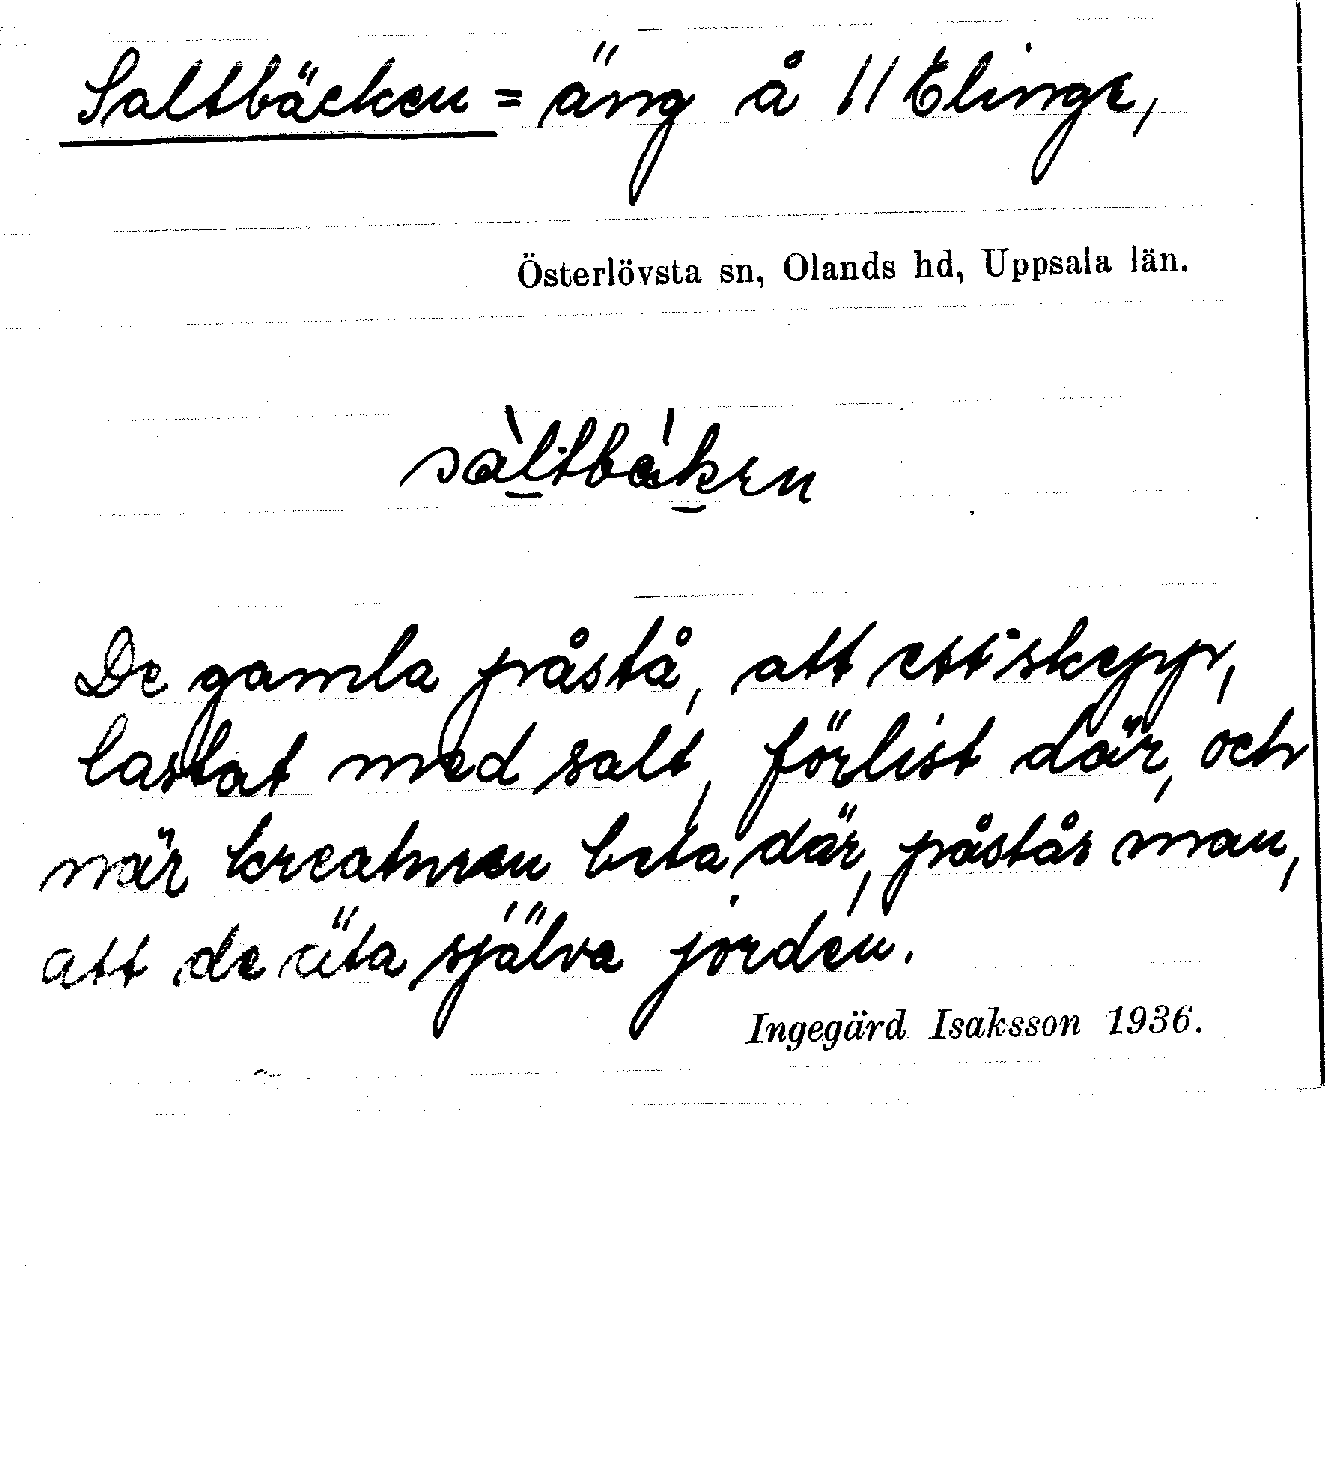 Saltbäcken = äng å 11 Elinge,
Österlövsta sn, Olands hd, Uppsala län.
sàltbákɛn
De gamla påstå, att ett skepp,
lastat med salt, förlist där, och
när kreaturen beta där, påstår man,
att de äta själva jorden.
Ingegärd Isaksson 1936.